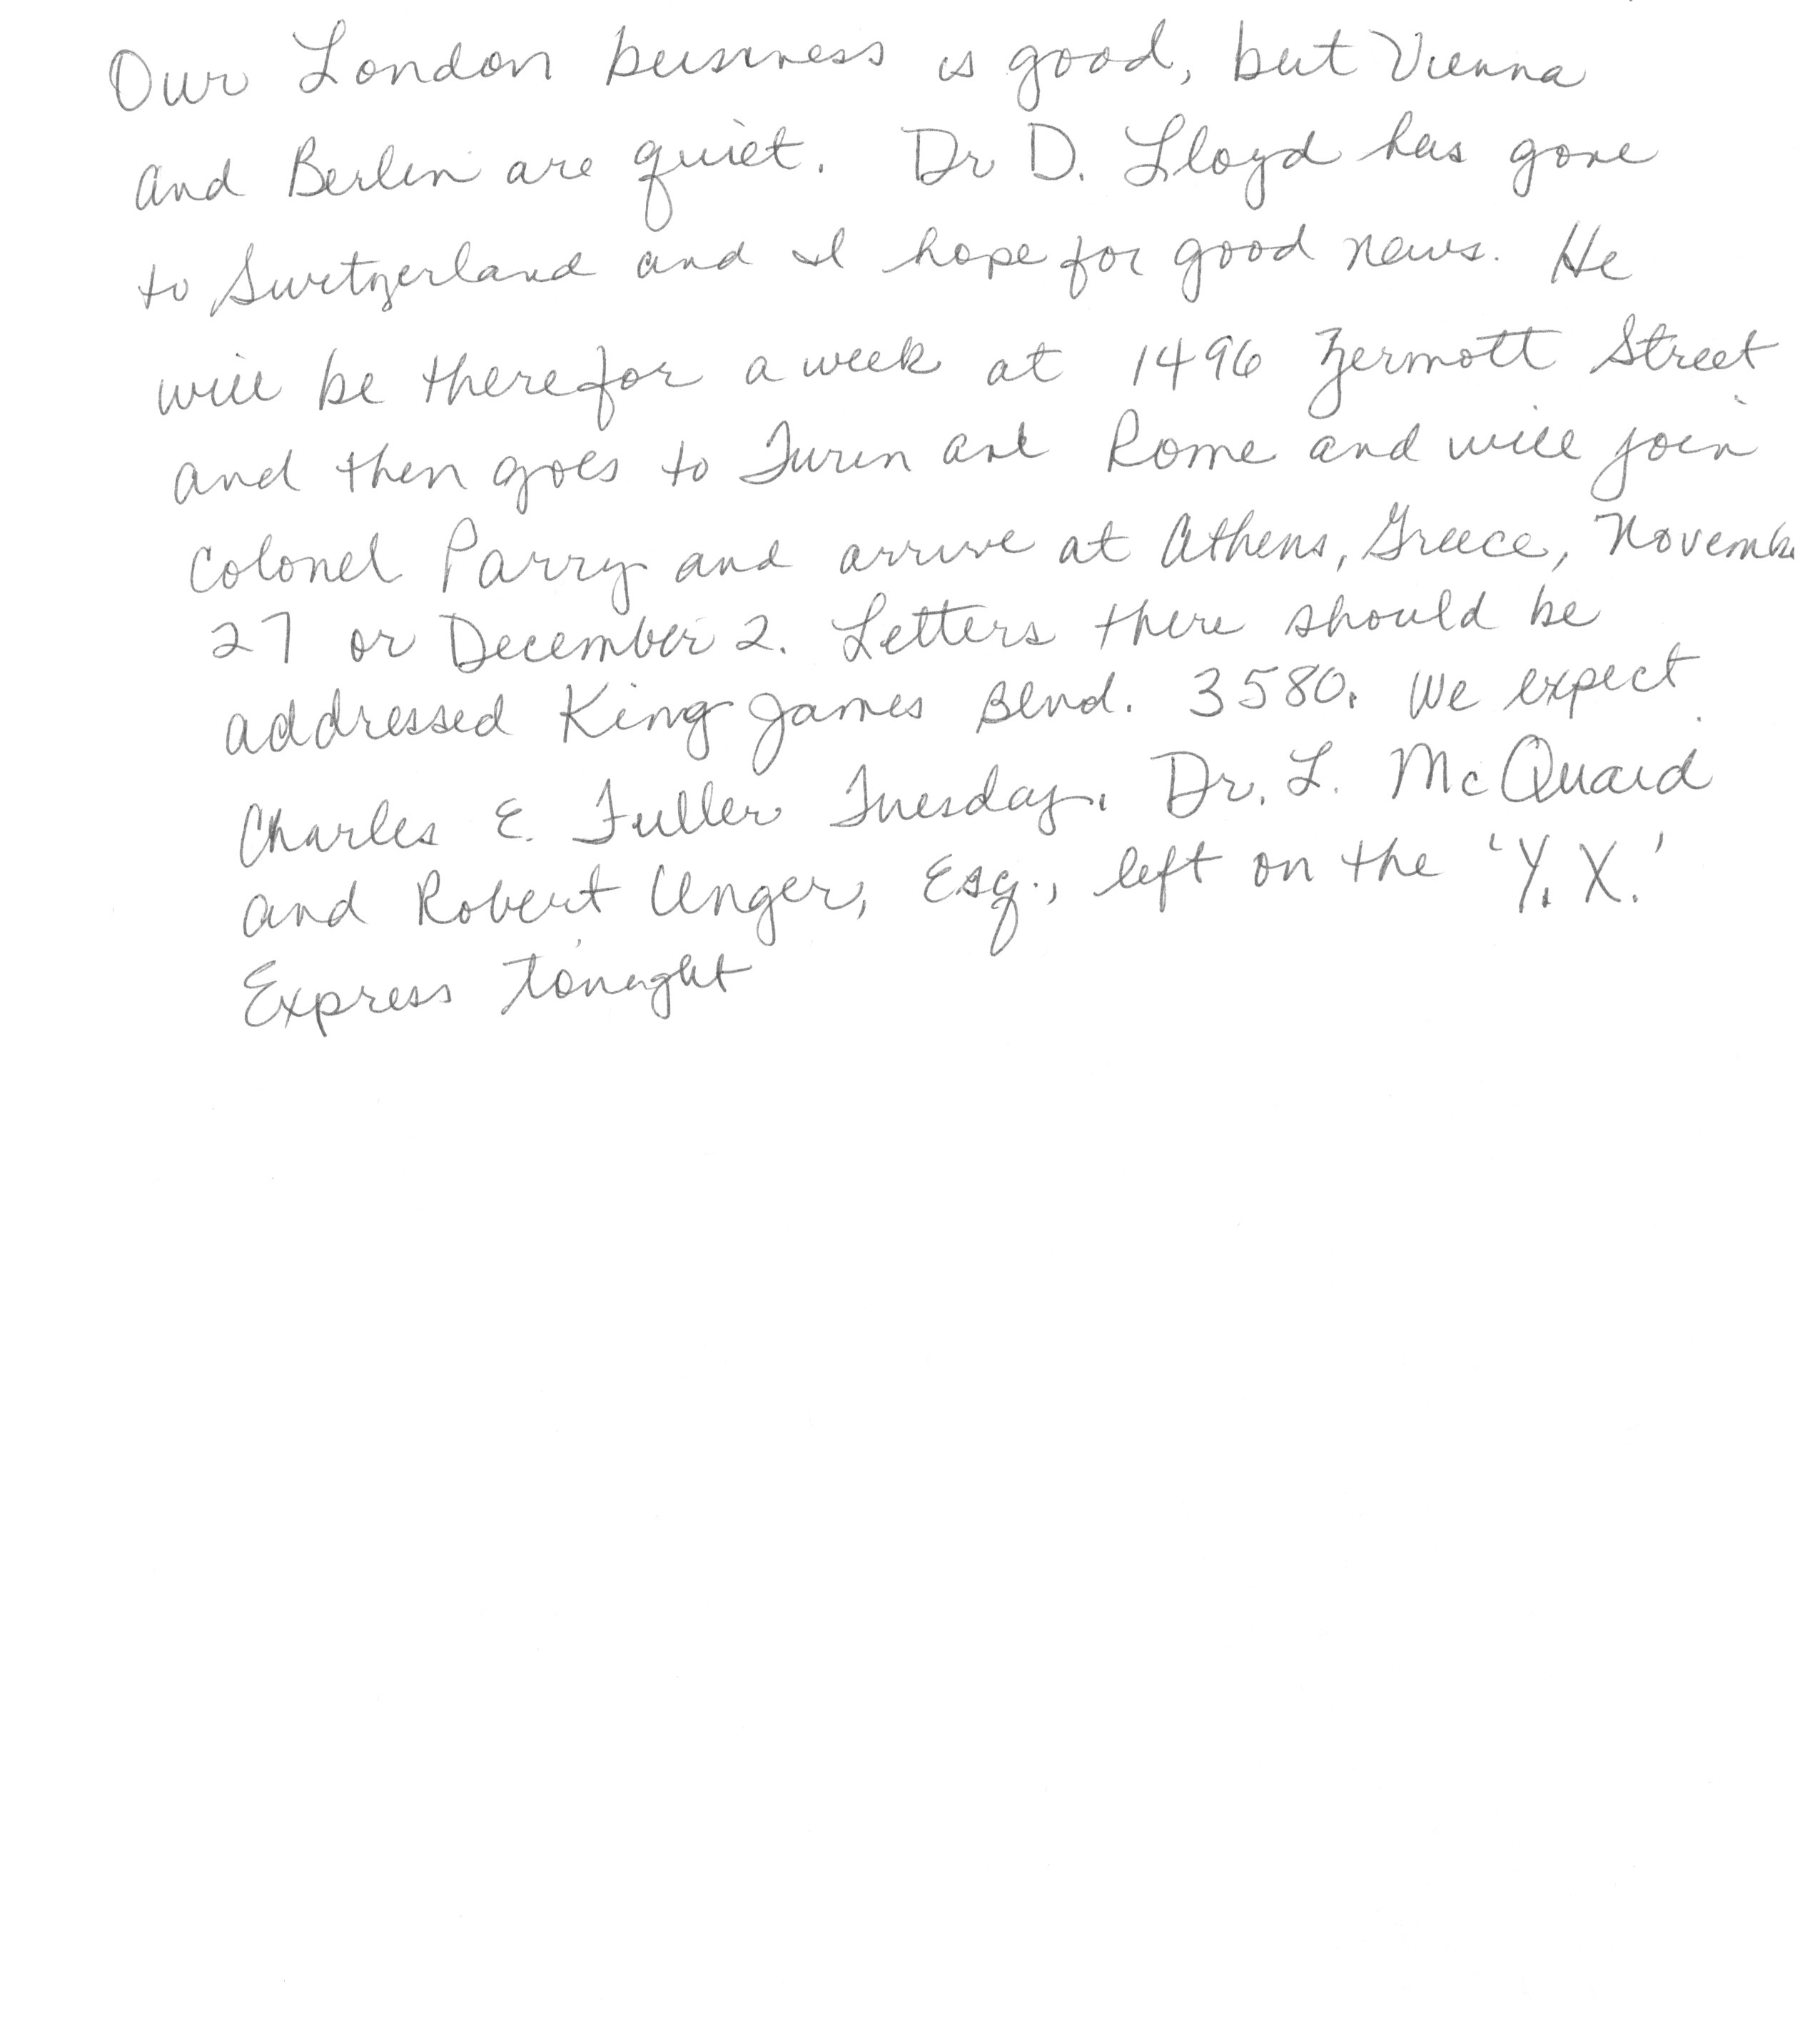 Our London business is good, but Vienna
and Berlin are quiet. Dr D. Lloyd has gone
to Switzerland and I hope for good news. He
will be there for a week at 1496 Zermott Street
and then goes to Turin and Rome and will join
Colonel Parry and arrive at Athens, Greece, November
27 or December 2. Letters there should be
addressed King James Blvd. 3580. We expect
Charles E. Fuller Tuesday. Dr. L. McQuaid
and Robert Unger, Esq., left on the 'Y.X.'
Express tonight